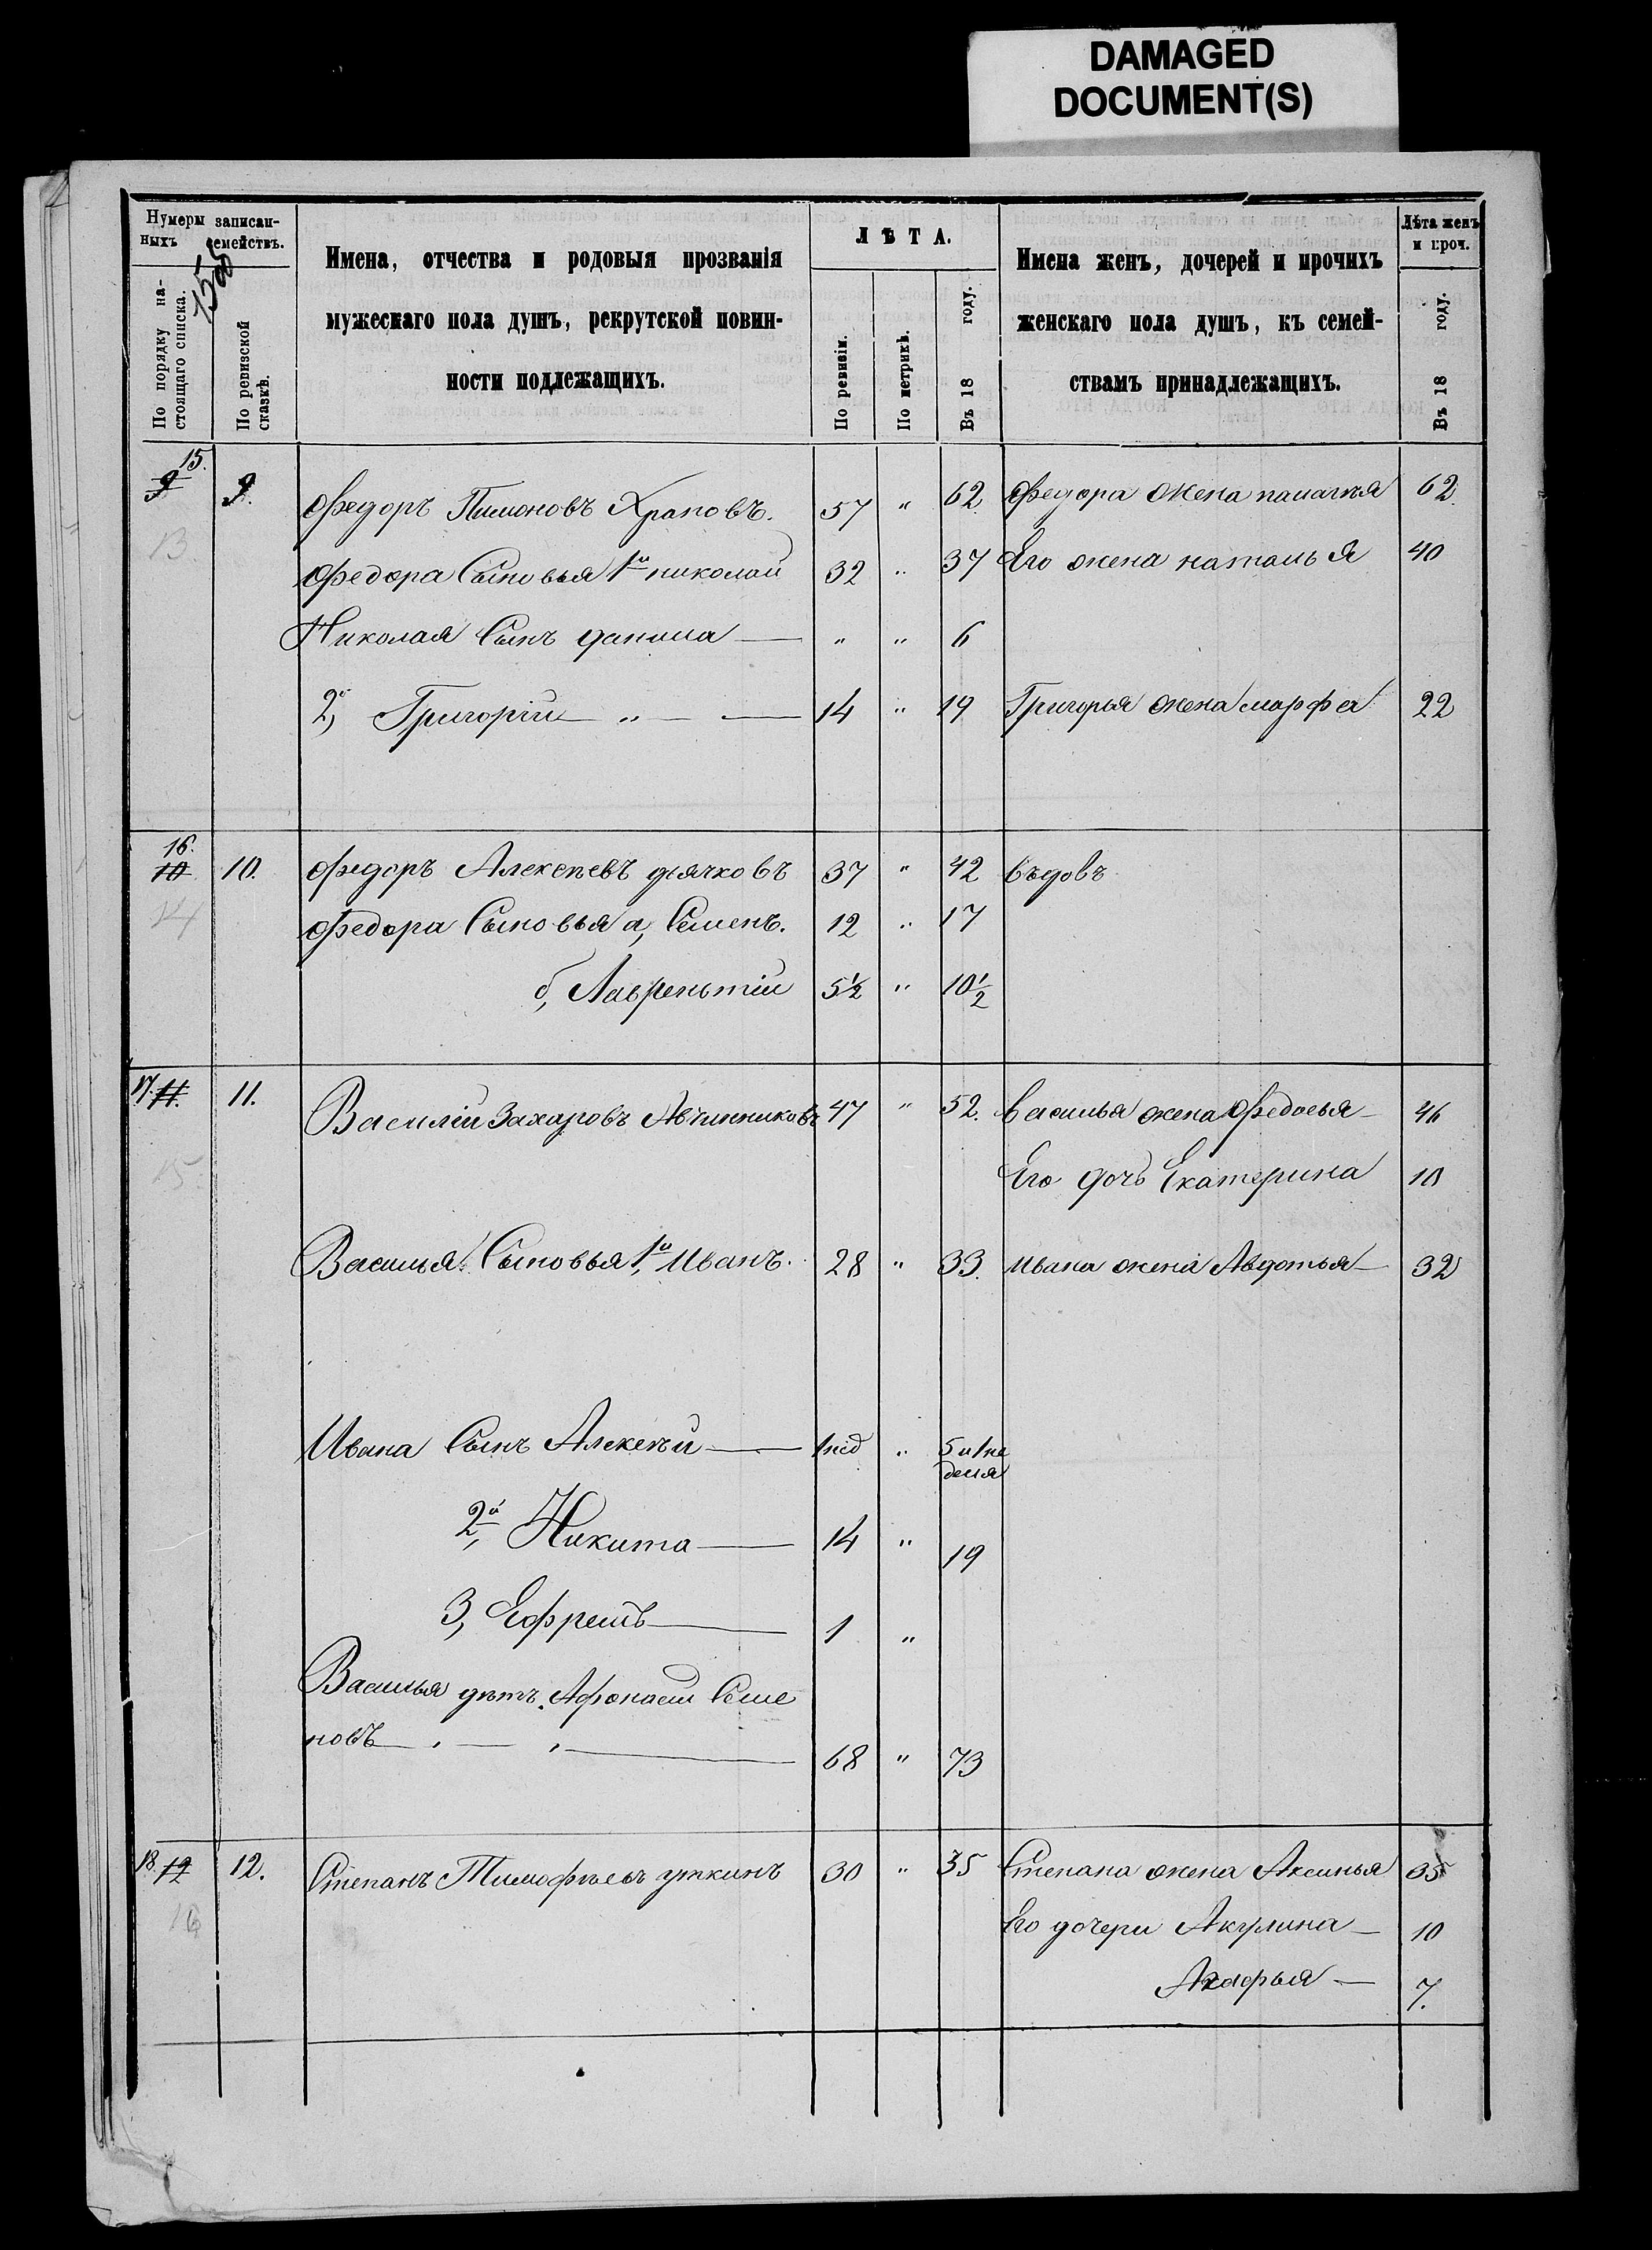 DAMAGED
DOCUMENT(S)
Нумеры записан-
ныхъ семействъ.
По порядку на-
стоящаго списка.
По ревизской
сказкѣ.
Имена, отчества и родовыя прозванія
мужескаго пола душъ, рекрутской повин-
ности подлежащихъ.
ЛѢТА.
По ревизіи.
По метрикѣ.
Въ 18 году.
Имена женъ, дочерей и прочихъ
женскаго пола душъ, къ семей-
ствамъ принадлежащихъ.
Лѣта женъ
и проч.
Въ 18 году.
15.
9 9. Федоръ Пимоновъ Храповъ. 57 " 62 Федора жена 62
13
Федора Сыновья 1й николай 32 " 37 Его жена наталья 40
Николая Сынъ данила — " " 6
2й, Григорій — " — — 14 " 19 Григорья жена марфа 22
16.
10 10. Федоръ Алексеевъ дьячковъ 37 " 42 въдовъ
14 Федора Сыновья а, Семенъ. 12 " 17
б, Лаврентій 5½ " 10½
17. 11. 11. Василій Захаровъ Авчинниковъ 47 " 52. василья жена Федосья — 46
15 Его дочь Екатерина 10
Василья Сыновья 1й, Иванъ. 28 " 33. ивана жена Авдотья — 32
Ивана Сынъ Алексѣй — 1нед " 5 и 1 не
деля
2й, Никита — 14 " 19
3, Ефремъ — 1 "
Василья дятъ. Афонасей Семе
новъ — 68 " 73
18. 12 12. Степанъ Тимофѣевъ уткинъ 30 " 35 Степана жена Аксинья 35
16 Его дочери Акулина — 10
Агафья — 7.